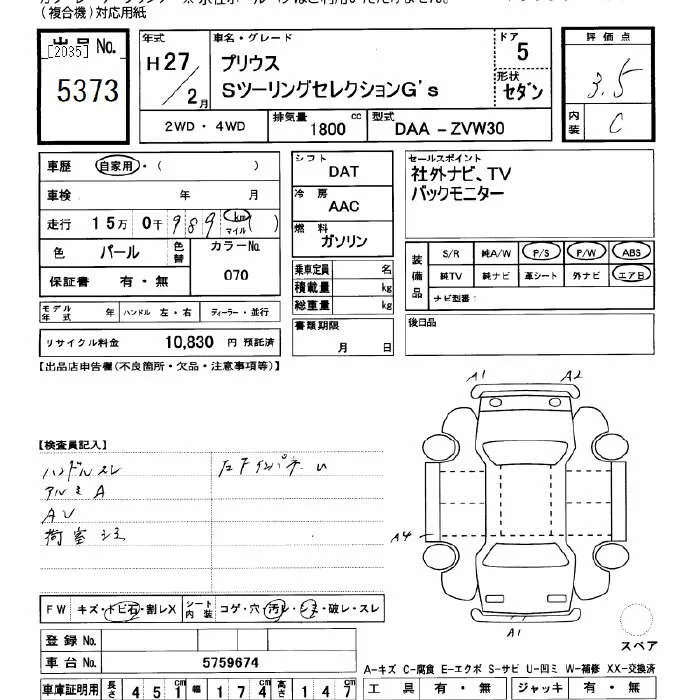 (複合機)対応用紙
出品 No.
[2035]
5373
年式
H27/2月
車名・グレード
プリウス
SツーリングセレクションG's
ドア
5
形状
セダン
評価点
3.5
内装
C
2WD・4WD
排気量 1800 cc
型式 DAA-ZVW30
車歴 自家用・( )
車検 年 月
走行 15万 0千 989 km マイル ( )
色 パール 色替 カラーNo.
保証書 有・無 070
モデル年式 年 ハンドル 左・右 ディーラー・並行
リサイクル料金 10,830 円 預託済
シフト
DAT
冷房
AAC
燃料
ガソリン
乗車定員 名
積載量 kg
総重量 kg
書類期限
月 日
セールスポイント
社外ナビ、TV
バックモニター
装備品
S/R 純A/W P/S P/W ABS
純TV 純ナビ 革シート 外ナビ エアB
ナビ型番:
後日品
【出品店申告欄(不良箇所・欠品・注意事項等)】
【検査員記入】
ハンドルスレ
アルミA
AU
荷室シミ
A1 A2
A4
A1
スペア
FW キズ・トビ石・割レX シート内装 コゲ・穴・汚レ・シミ・破レ・スレ
登録 No.
車台 No. 5759674
車庫証明用 長さ 451cm 幅 174cm 高さ 147cm
A-キズ C-腐食 E-エクボ S-サビ U-凹ミ W-補修 XX-交換済
工具 有・無 ジャッキ 有・無